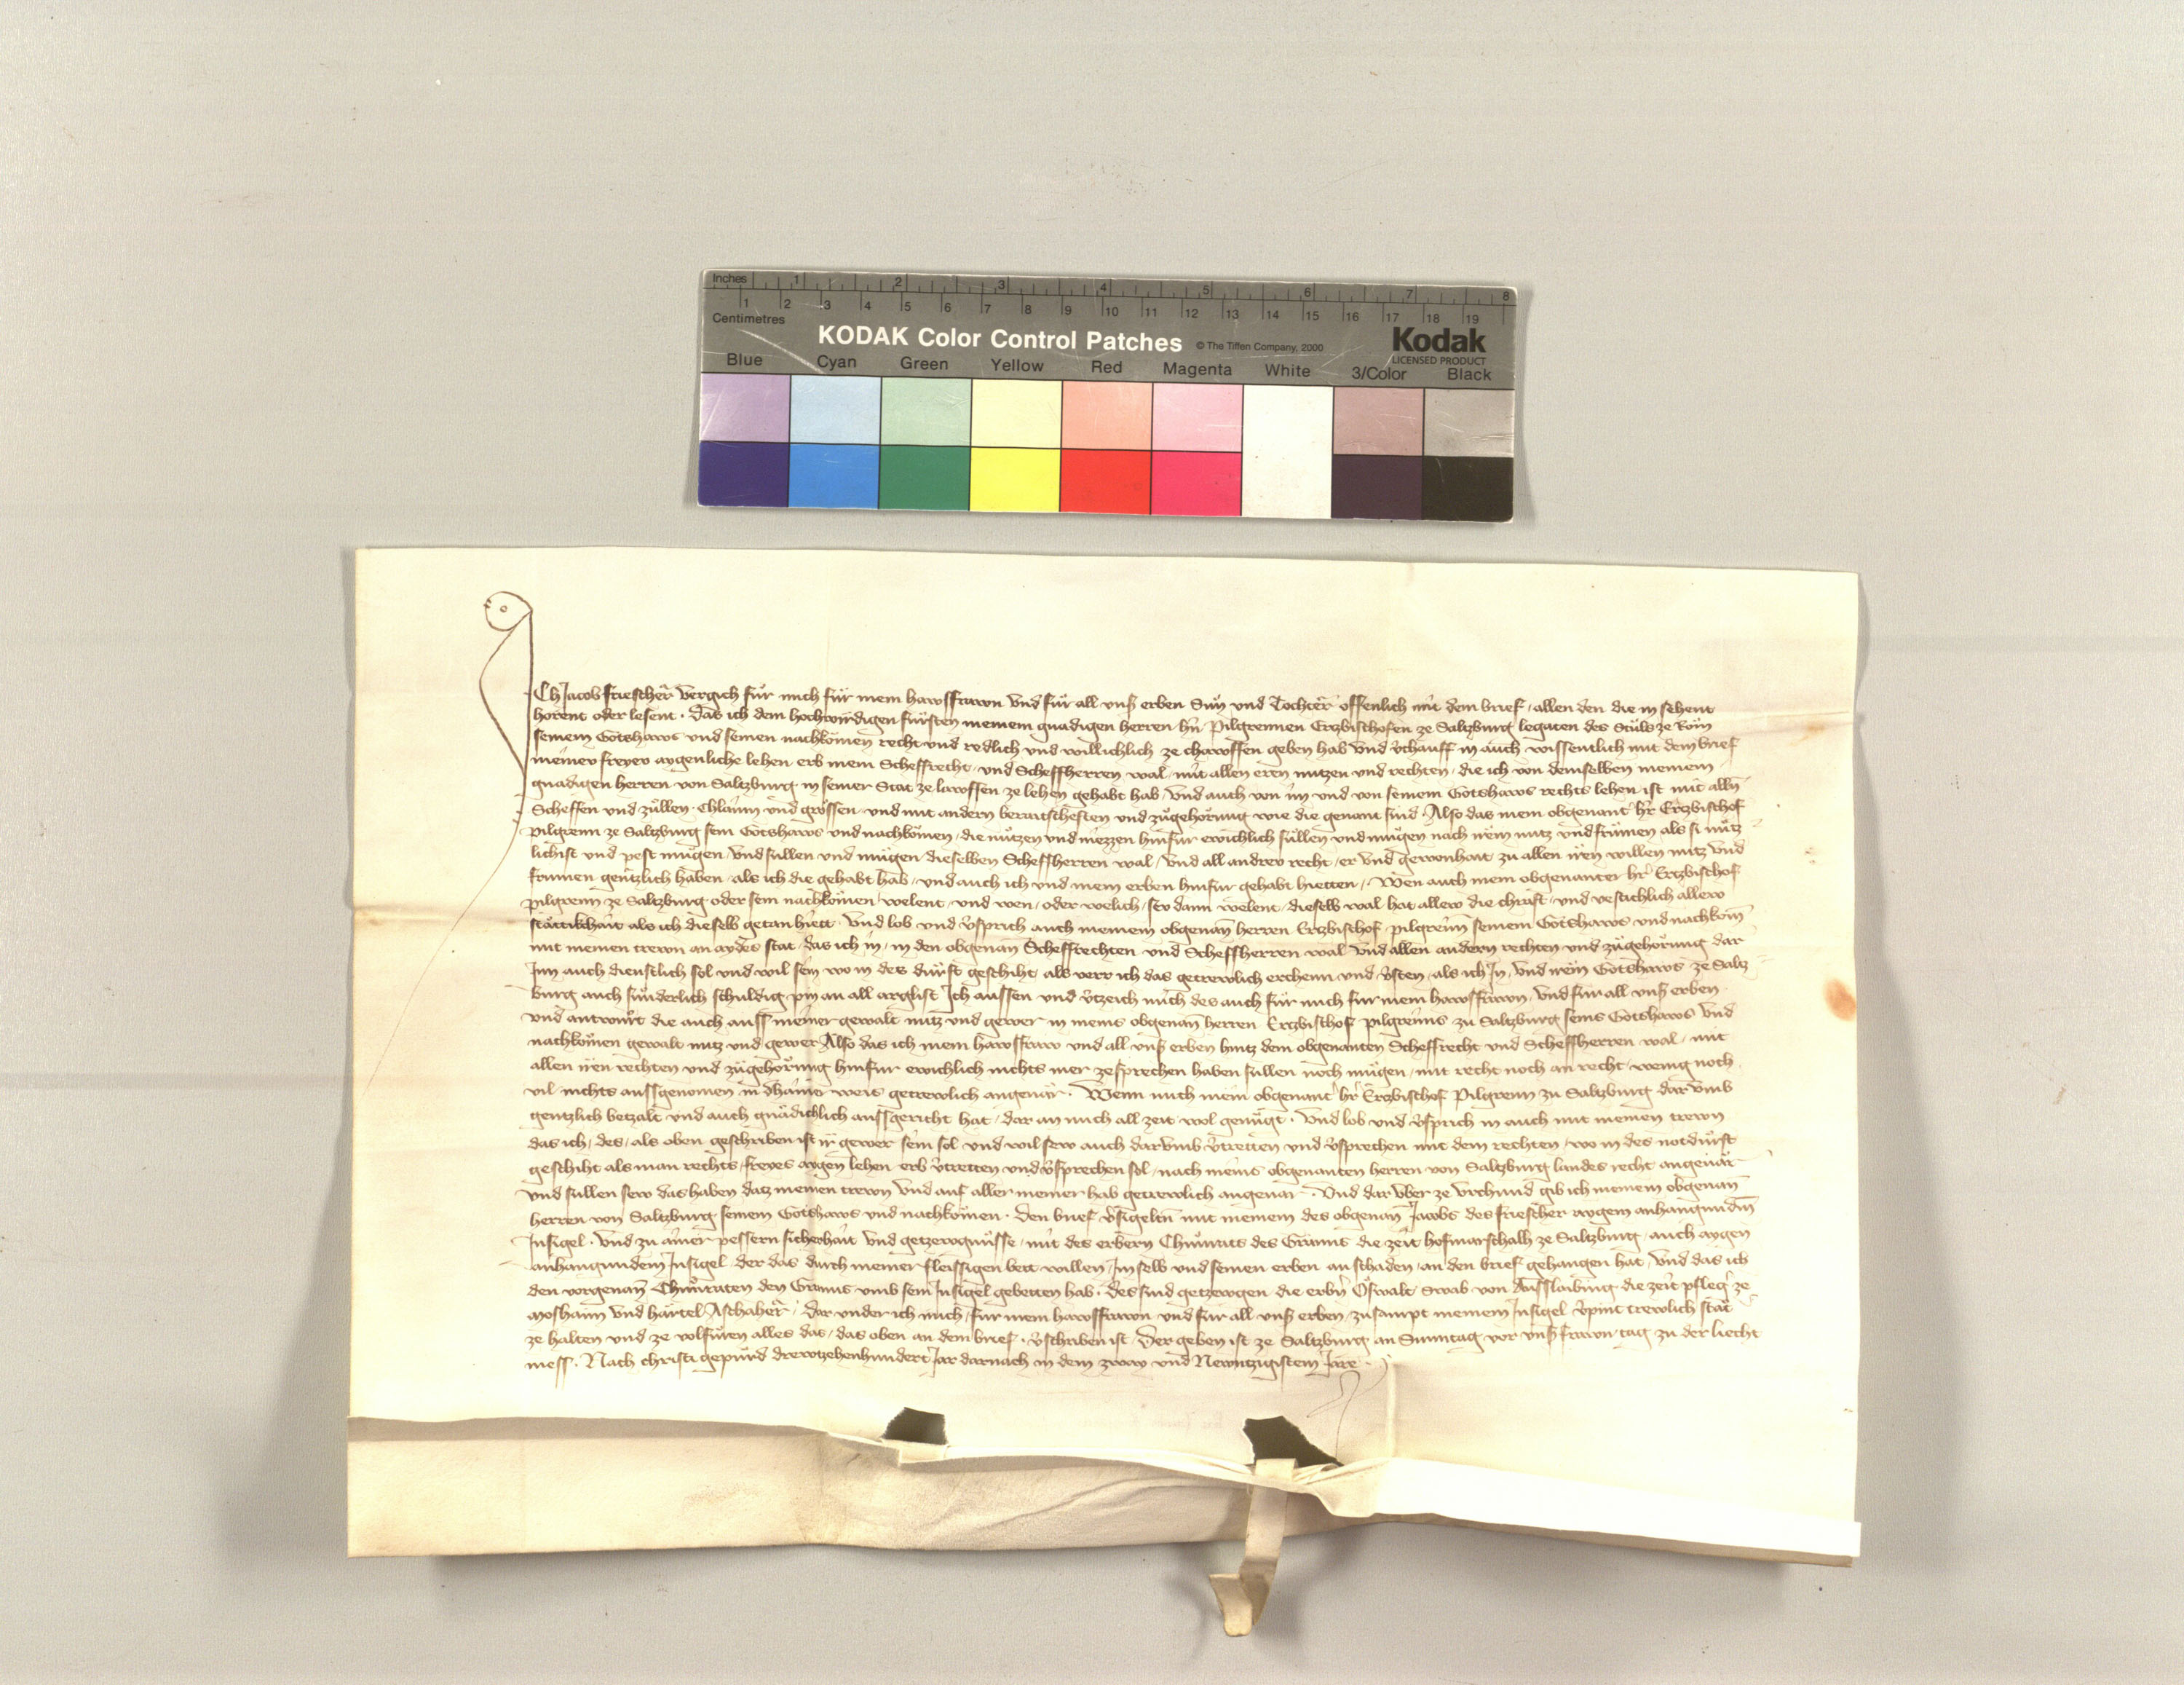 Inches 1 2 3 4 5 6 7 8
1 2 3 4 5 6 7 8 9 10 11 12 13 14 15 16 17 18 19
Centimetres
KODAK Color Control Patches © The Tiffen Company, 2000 Kodak
LICENSED PRODUCT
Blue Cyan Green Yellow Red Magenta White 3/Color Black
Ich Jacob friescher vergich für mich für mein hawsfrawn vnd für all vnß erben Sün vnd Tochter offenlich mit dem brief allen den die in sehent
horent oder lesent · Das ich dem hochwirdigen fürsten meinem gnadigen herren hn̄ Pilgreimen Erzbischofen ze Saltzburg legaten des Stůls ze Rom
seinem Gotshaws vnd seinen nachkomen recht vnd redlich vnd willichlich ze chawffen geben hab vnd v̉chauff in auch wissentlich mit dem brief
meinev freyev aygenliche lehen erb mein Scheffrecht vnd Scheffherren wal mit allen eren nutzen vnd rechten die ich von demselben meinem
gnadigen herren von Saltzburg in seiner Stat ze lawffen ze lehen gehabt hab vnd auch von im vnd von seinem Gotshaws rechts lehen ist mit alln̄
Scheffen vnd zullen · Chlainn vnd grossen vnd mit andern beraitscheften vnd zugehorung wie die genant sind Also das mein obgenant hr̉ Erzbischof
pilgreim ze Saltzburg sein Gotshaws vnd nachkomen die nutzen vnd niezzen hinfur ewichlich sullen vnd mugen nach irem nutz vnd frumen als si nutz
lichist vnd pest mugen vnd sullen vnd mugen dieselben Scheffherren wal vnd all andrev recht er vnd gewonhait zu allen iren willen nutz vnd
frumen gentzlich haben als ich die gehabt hab vnd auch ich vnd mein erben hinfur gehabt hietten · Wen auch mein obgenanter hr̉ Erzbischof
pilgreim ze Saltzburg oder sein nachkomen welent vnd wen oder welich sew dann welent dieselb wal hat allew die chraft vnd vestichlich allew
stattikchait als ich dieselb getan hiett vnd lob vnd v̉sprich auch meinem obgenan̄ herren Erzbischof pilgreim seinem Gotshaws vnd nachkom̄
mit meinen trewn an aydes stat das ich in in den obgenan̄ Scheffrechten vnd Scheffherren wal vnd allen andern rechten vnd zugehorung dar
Inn auch dienstlich sol vnd wil sein wo in des durft geschiht als verr ich das getrewlich erchenn vnd v̉sten als ich In vnd irem Gotshaws ze Saltz
burg auch sunderlich schuldig pin an all arglist Ich aussen vnd v̉tzeich mich des auch für mich für mein hawsfrawn vnd für all vnß erben
vnd antwurt die auch auss meiner gewalt nutz vnd gewer in meins obgenan̄ herren Erzbischof pilgreims zu Saltzburg seins Gotshaws vnd
nachkomen gewalt nutz vnd gewer Also das ich mein hawsfraw vnd all vnß erben hintz dem obgenanten Scheffrecht vnd Scheffherren wal mit
allen iren rechten vnd zugehorung hinfur ewichlich nichts mer ze sprechen haben sullen noch mugen mit recht noch an recht wenig noch
vil nichts aussgenomen in dhainer weis getrewlich angeuar · Wenn mich mein obgenant hr̉ Erzbischof Pilgreim zu Saltzburg dar vmb
gentzlich betzalt vnd auch gnadichlich aussgericht hat dar an mich all zeit wol genugt · vnd lob vnd v̉sprich in auch mit meinen trewn
das ich des als oben geschriben ist ir gewer sein sol vnd wil sew auch darvmb v̉tretten vnd v̉sprechen mit dem rechten wo in des notdurft
geschiht als man rechts freyes aygen lehen erb v̉tretten vnd v̉sprechen sol nach meins obgenanten herren von Saltzburg landes recht angeuar
vnd sullen sew das haben datz meinen trewn vnd auf aller meiner hab getrewlich angeuar · Vnd dar vber ze vrchund gib ich meinem obgenan̄
herren von Saltzburg seinem Gotshaws vnd nachkomen · den brief v̉sigelten mit meinem des obgenan̄ Jacobs des friescher aygem anhangundm̄
Insigel · Vnd zu ainer pessern sicherhait vnd getzewgnusse mit des erbern Chunrats des Granns die zeit hofmarschalh ze Saltzburg auch aygen
anhangundem Insigel der das durch meiner fleissigen bett willen Im selb vnd seinen erben an schaden an den brief gehangen hat vnd das ich
den vorgenan̄ Chunraten den Granns vmb sein Insigel gebetten hab · des sind getzewgen die erbn̄ Oswalt Swab von die zeit pfleg̉ ze
Moshaim vnd hartel Aschaher · Dar vnder ich mich für mein hawsfrawn vnd für all vnß erben zusampt meinem Insigel v̉pint trewlich stat
ze halten vnd ze volfuren alles das das oben an dem brief v̉schriben ist Der geben ist ze Saltzburg an Sunntag vor vnß frawn tag zu der liecht
mess · Nach christi gepurd drewtzehenhundert Jar darnach in dem zway vnd Newntzigistem Jare